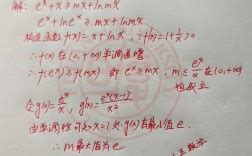 解: eˣ+x ≥ mx+lnmx
eˣ+lneˣ ≥ mx+lnmx
构造函数f(x)=x+lnx, ∵f'(x)=1+1/x>0
∴f(x)在(0,+∞)单调递增
∴f(eˣ)≥f(mx) 即 eˣ≥mx, m≤eˣ/x 在(0,+∞)
恒成立
令g(x)=eˣ/x, g'(x)=eˣ(x-1)/x²
由单调性可知x=1处g(x)有最小值e.
∴m最大值为e